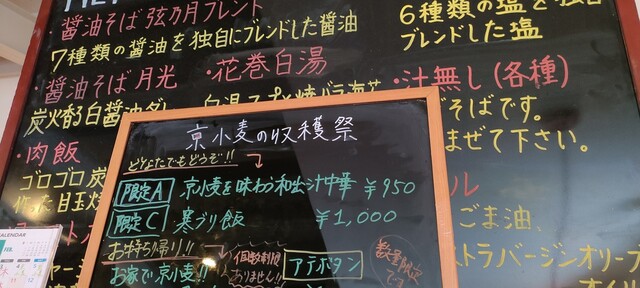 ・醤油そば弦乃月ブレンド
7種類の醤油を独自にブレンドした醤油
・醤油そば月光
炭火香る白醤油ダ
・肉飯
ゴロゴロ炭
作った目玉焼
・花巻白湯
6種類の塩を独自
ブレンドした塩
・汁無し(各種)
そばです。
まぜて下さい。
ル
ごま油、
ストラバージンオリーブ
オイル
京小麦の収穫祭
どなたでもどうぞ!!
限定A 京小麦を味わう和出汁中華 ¥950
限定C 寒ブリ飯 ¥1,000
お持ち帰り!!
お家で京小麦!!
個数制限
ありません!!
アテボタン
数量限定
です
CALENDAR